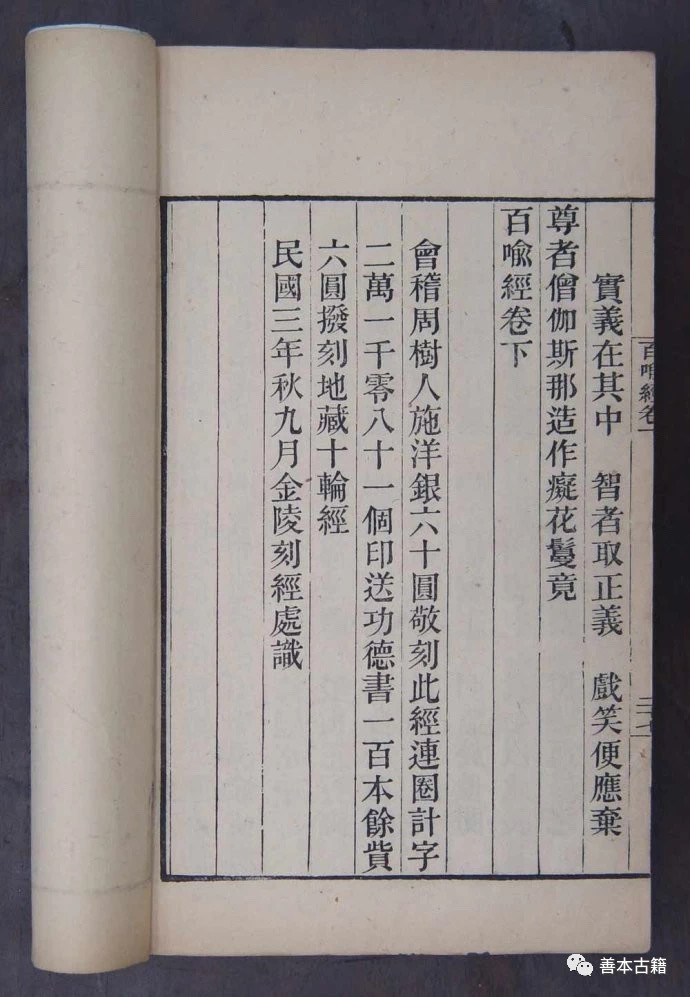 實義在其中　智者取正義　戲笑便應棄
尊者僧伽斯那造作癡花鬘竟
百喩經卷下
會稽周樹人施洋銀六十圓敬刻此經連圈計字
二萬一千零八十一個印送功德書一百本餘貲
六圓撥刻地藏十輪經
民國三年秋九月金陵刻經處識
百喩經卷
善本古籍